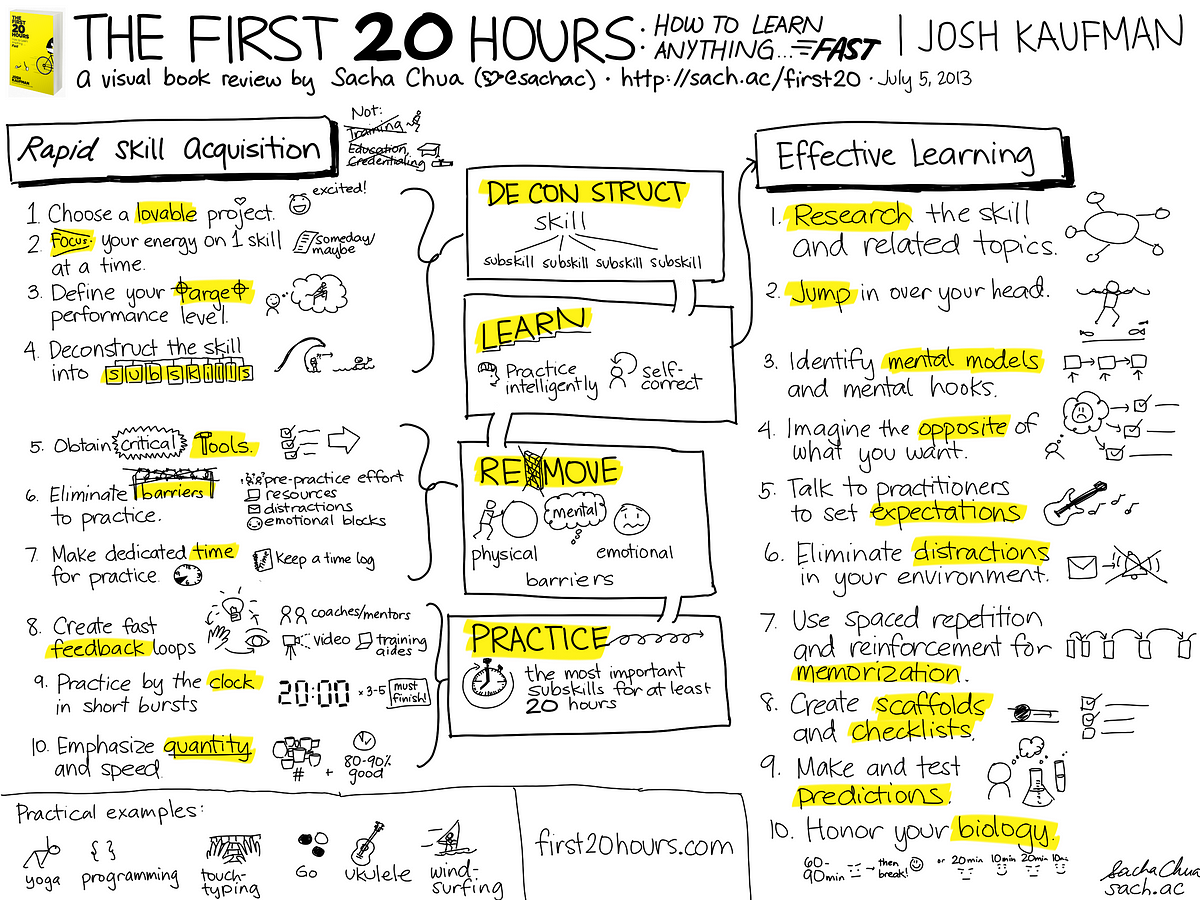 THE FIRST 20 HOURS
THE FIRST 20 HOURS: HOW TO LEARN ANYTHING... FAST | JOSH KAUFMAN
a visual book review by Sacha Chua (@sachac) · http://sach.ac/first20 · July 5, 2013
Rapid Skill Acquisition
Not:
Training
Education,
Credentialing
1. Choose a lovable project.
excited!
2. Focus your energy on 1 skill
at a time.
someday/
maybe
3. Define your target
performance level.
4. Deconstruct the skill
into subskills
5. Obtain critical Tools.
6. Eliminate barriers
to practice.
pre-practice effort
resources
distractions
emotional blocks
7. Make dedicated time
for practice.
Keep a time log
8. Create fast
feedback loops
coaches/mentors
video
training
aides
9. Practice by the clock
in short bursts
20:00 x 3-5
must
finish!
10. Emphasize quantity
and speed.
# +
80-90%
good
DECONSTRUCT
skill
subskill subskill subskill subskill
LEARN
Practice
intelligently
self-
correct
REMOVE
physical
mental
emotional
barriers
PRACTICE
the most important
subskills for at least
20 hours
Effective Learning
1. Research the skill
and related topics.
2. Jump in over your head.
3. Identify mental models
and mental hooks.
4. Imagine the opposite of
what you want.
5. Talk to practitioners
to set expectations
6. Eliminate distractions
in your environment.
7. Use spaced repetition
and reinforcement for
memorization.
8. Create scaffolds
and checklists.
9. Make and test
predictions.
10. Honor your biology.
60-
90min
then
break!
or 20min 10min 20min 10min
Practical examples:
yoga
{ }
programming
touch-
typing
Go
ukulele
wind-
surfing
first20hours.com
Sacha Chua
sach.ac